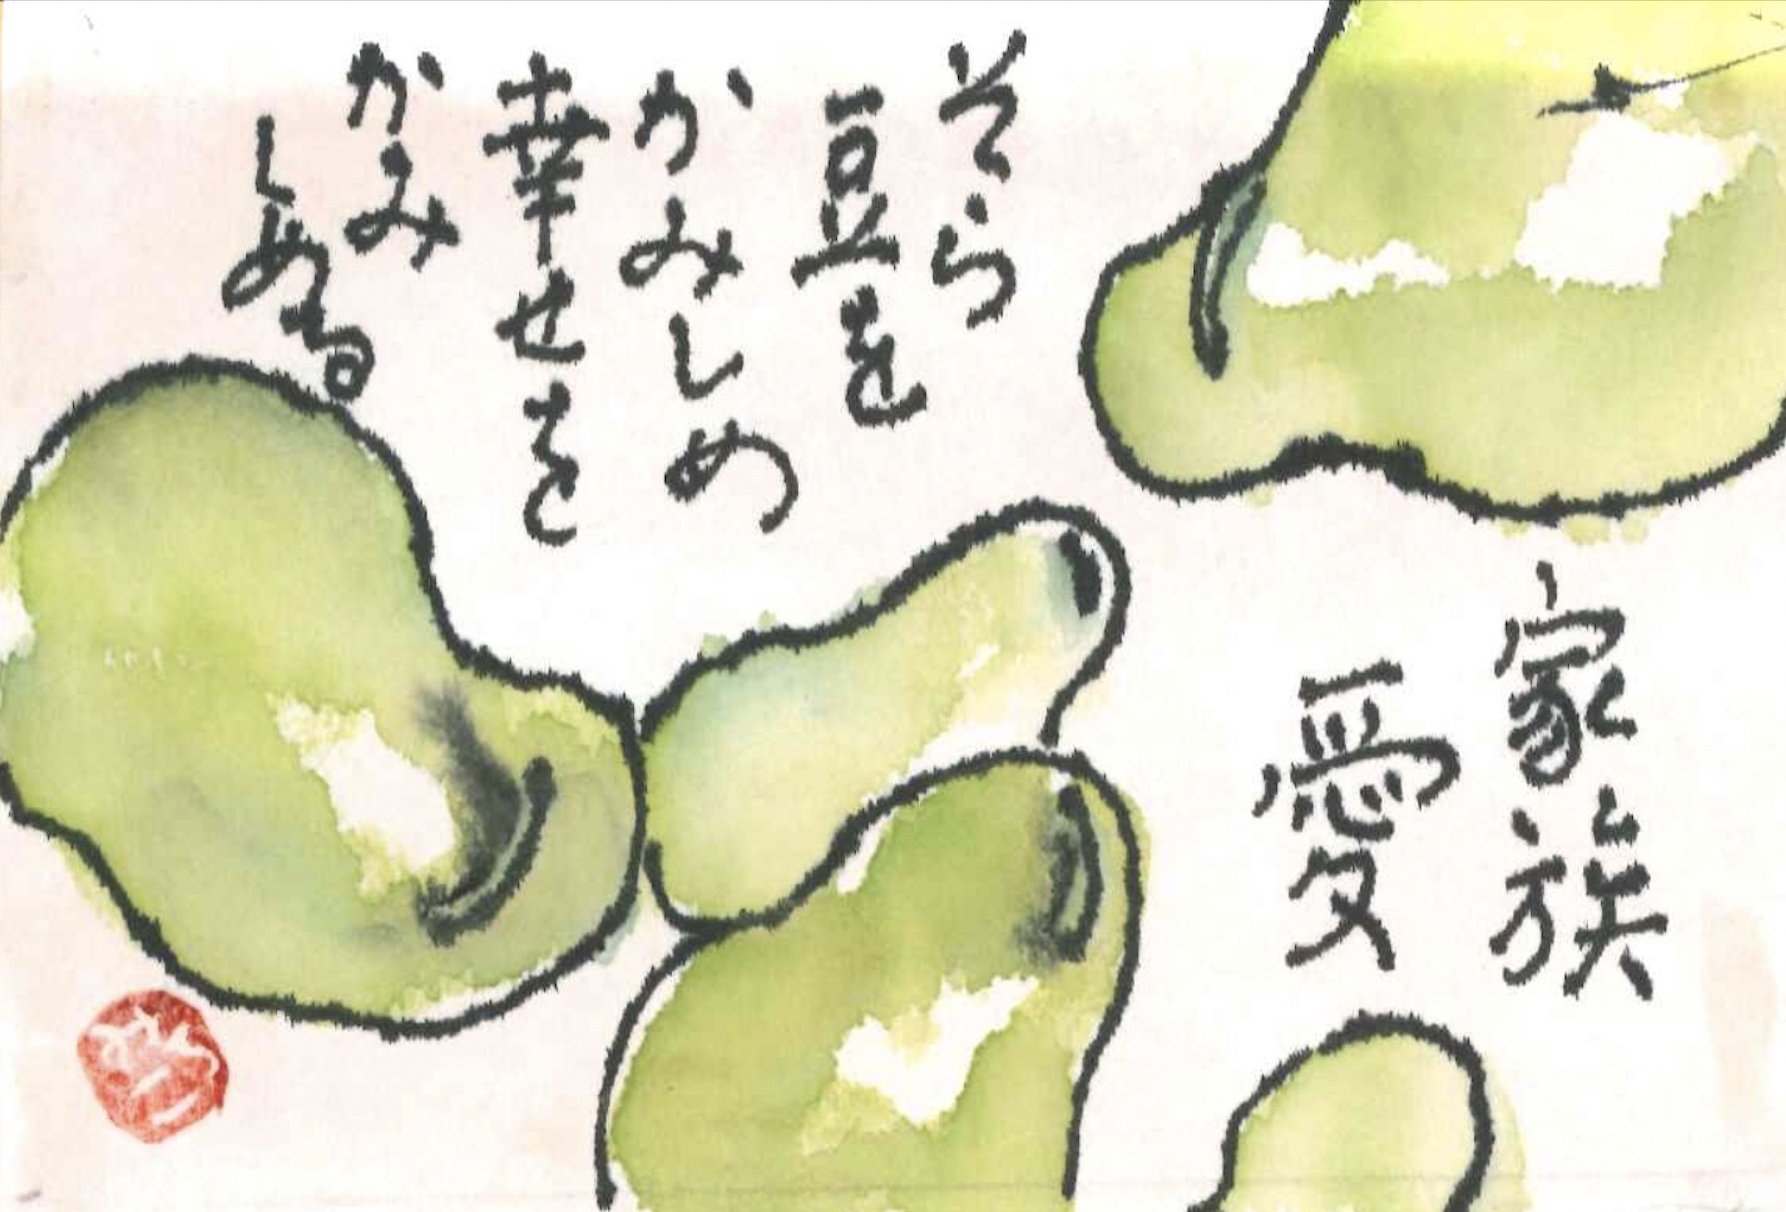 そら
豆を
かみしめ
幸せを
かみ
しめる
家族
愛